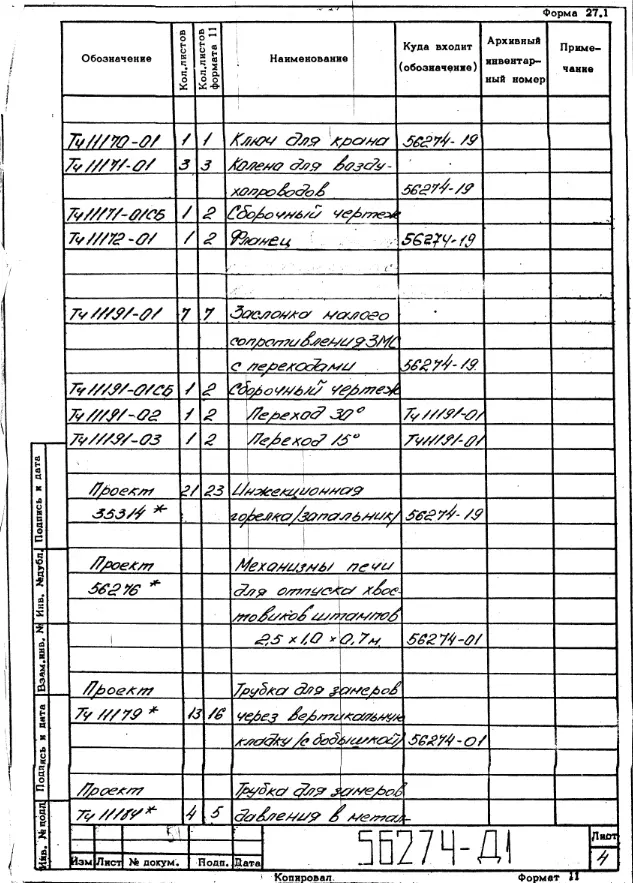 Форма 27.1
Обозначение Кол.листов Кол.листов формата 11 Наименование Куда входит (обозначение) Архивный инвентар-ный номер Приме-чание
Тч 11170-01 1 1 Ключ для крана 56274-19
Тч 11171-01 3 3 Колена для возду-
хопроводов 56274-19
Тч 11171-01СБ 1 2 Сборочный чертеж
Тч 11172-01 1 2 Фланец 56274-19
Тч 11191-01 7 7 Заслонка малого
сопротивления ЗМС
с переходами 56274-19
Тч 11191-01СБ 1 2 Сборочный чертеж
Тч 11191-02 1 2 Переход 30° Тч 11191-01
Тч 11191-03 1 2 Переход 15° Тч 11191-01
Проект 21 23 Инжекционная
35314 * горелка/запальник/ 56274-19
Проект Механизмы печи
56276 * для отпуска хвос-
товиков штампов
2,5 х 1,0 х 0,7 м. 56274-01
Проект Трубка для замеров
Тч 11179 * 13 16 через вертикальную
кладку /с бобышкой/ 56274-01
Проект Трубка для замеров
Тч 11184 * 4 5 давления в метал-
Инв. № подл. Подпись и дата Взам.инв. № Инв. №дубл. Подпись и дата
56274-Д1
Лист
4
Изм Лист № докум. Подп. Дата
Копировал Формат 11